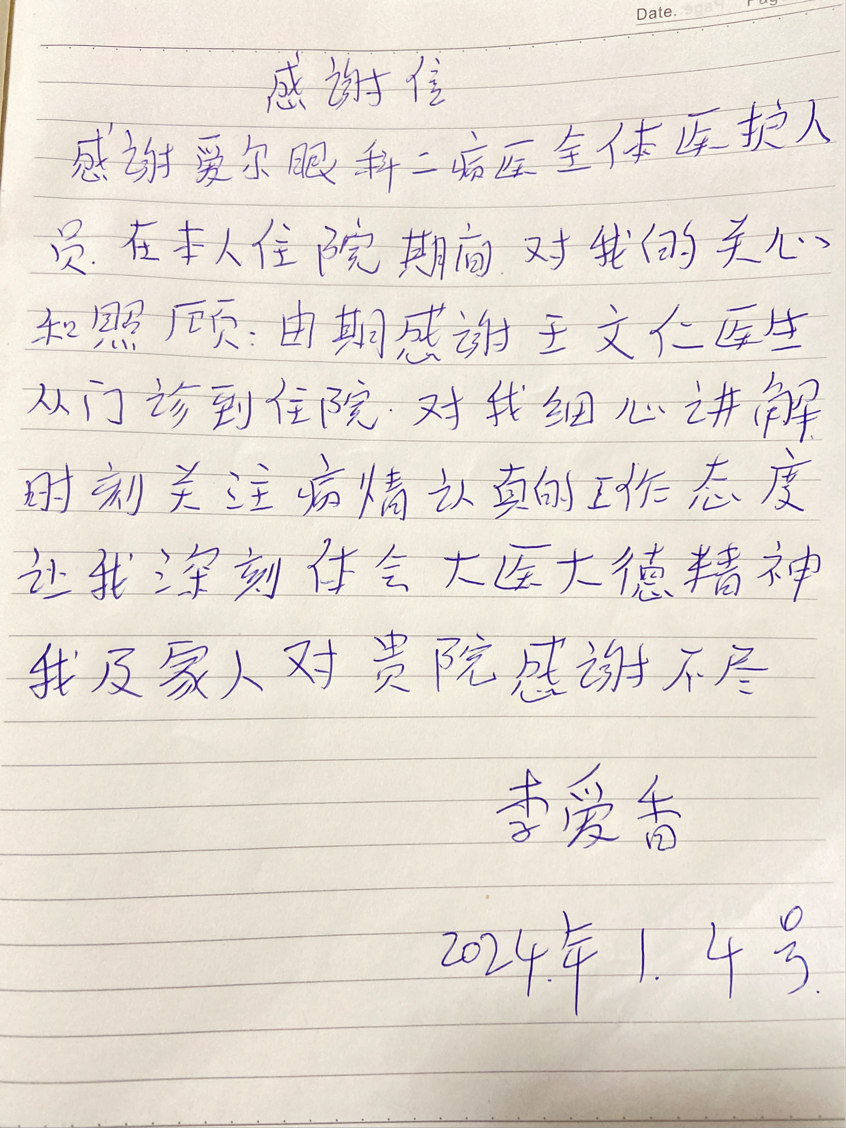 Date.
Page
感谢信
感谢爱尔眼科二病医全体医护人
员.在本人住院期间.对我的关心
和照顾:由期感谢王文仁医生
从门诊到住院.对我细心讲解
时刻关注病情认真的工作态度
让我深刻体会大医大德精神
我及家人对贵院感谢不尽
李爱香
2024.年1.4号.